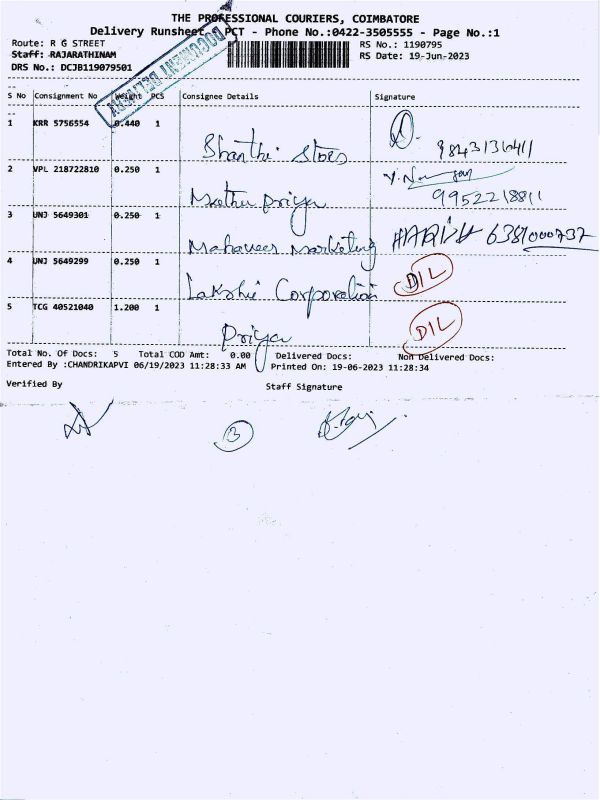 THE PROFESSIONAL COURIERS, COIMBATORE
Delivery Runsheet - PCT - Phone No.:0422-3505555 - Page No.:1
Route: R G STREET
RS No.: 1190795
Staff: RAJARATHINAM
RS Date: 19-Jun-2023
DRS No.: DCJB119079501
DOCUMENT DELIVERY
S No Consignment No Weight PCS Consignee Details Signature
1 KRR 5756554 0.440 1
Shanthi Stores 9843136411
2 VPL 218722810 0.250 1
Muthu Priya 9952218811
3 UNJ 5649301 0.250 1
Mahaveer Marketing HARISH 6381000737
4 UNJ 5649299 0.250 1
Lakshi Corporation DIL
5 TCG 40521040 1.200 1
Priya DIL
Total No. Of Docs: 5 Total COD Amt: 0.00 Delivered Docs: Non Delivered Docs:
Entered By :CHANDRIKAPVI 06/19/2023 11:28:33 AM Printed On: 19-06-2023 11:28:34
Verified By Staff Signature
3